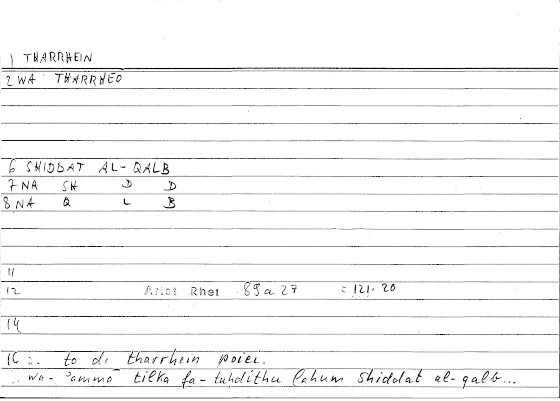 1 THARRHEIN
2 WA THARRHEO
6 SHIDDAT AL-QALB
7 NA SH D D
8 NA Q L B
11
12 Arist Rhet 89a27 = 121.20
14
16 .. to de tharrhein poiei.
.. wa-'ammā tilka fa-tuḥdithu lahum shiddat al-qalb...